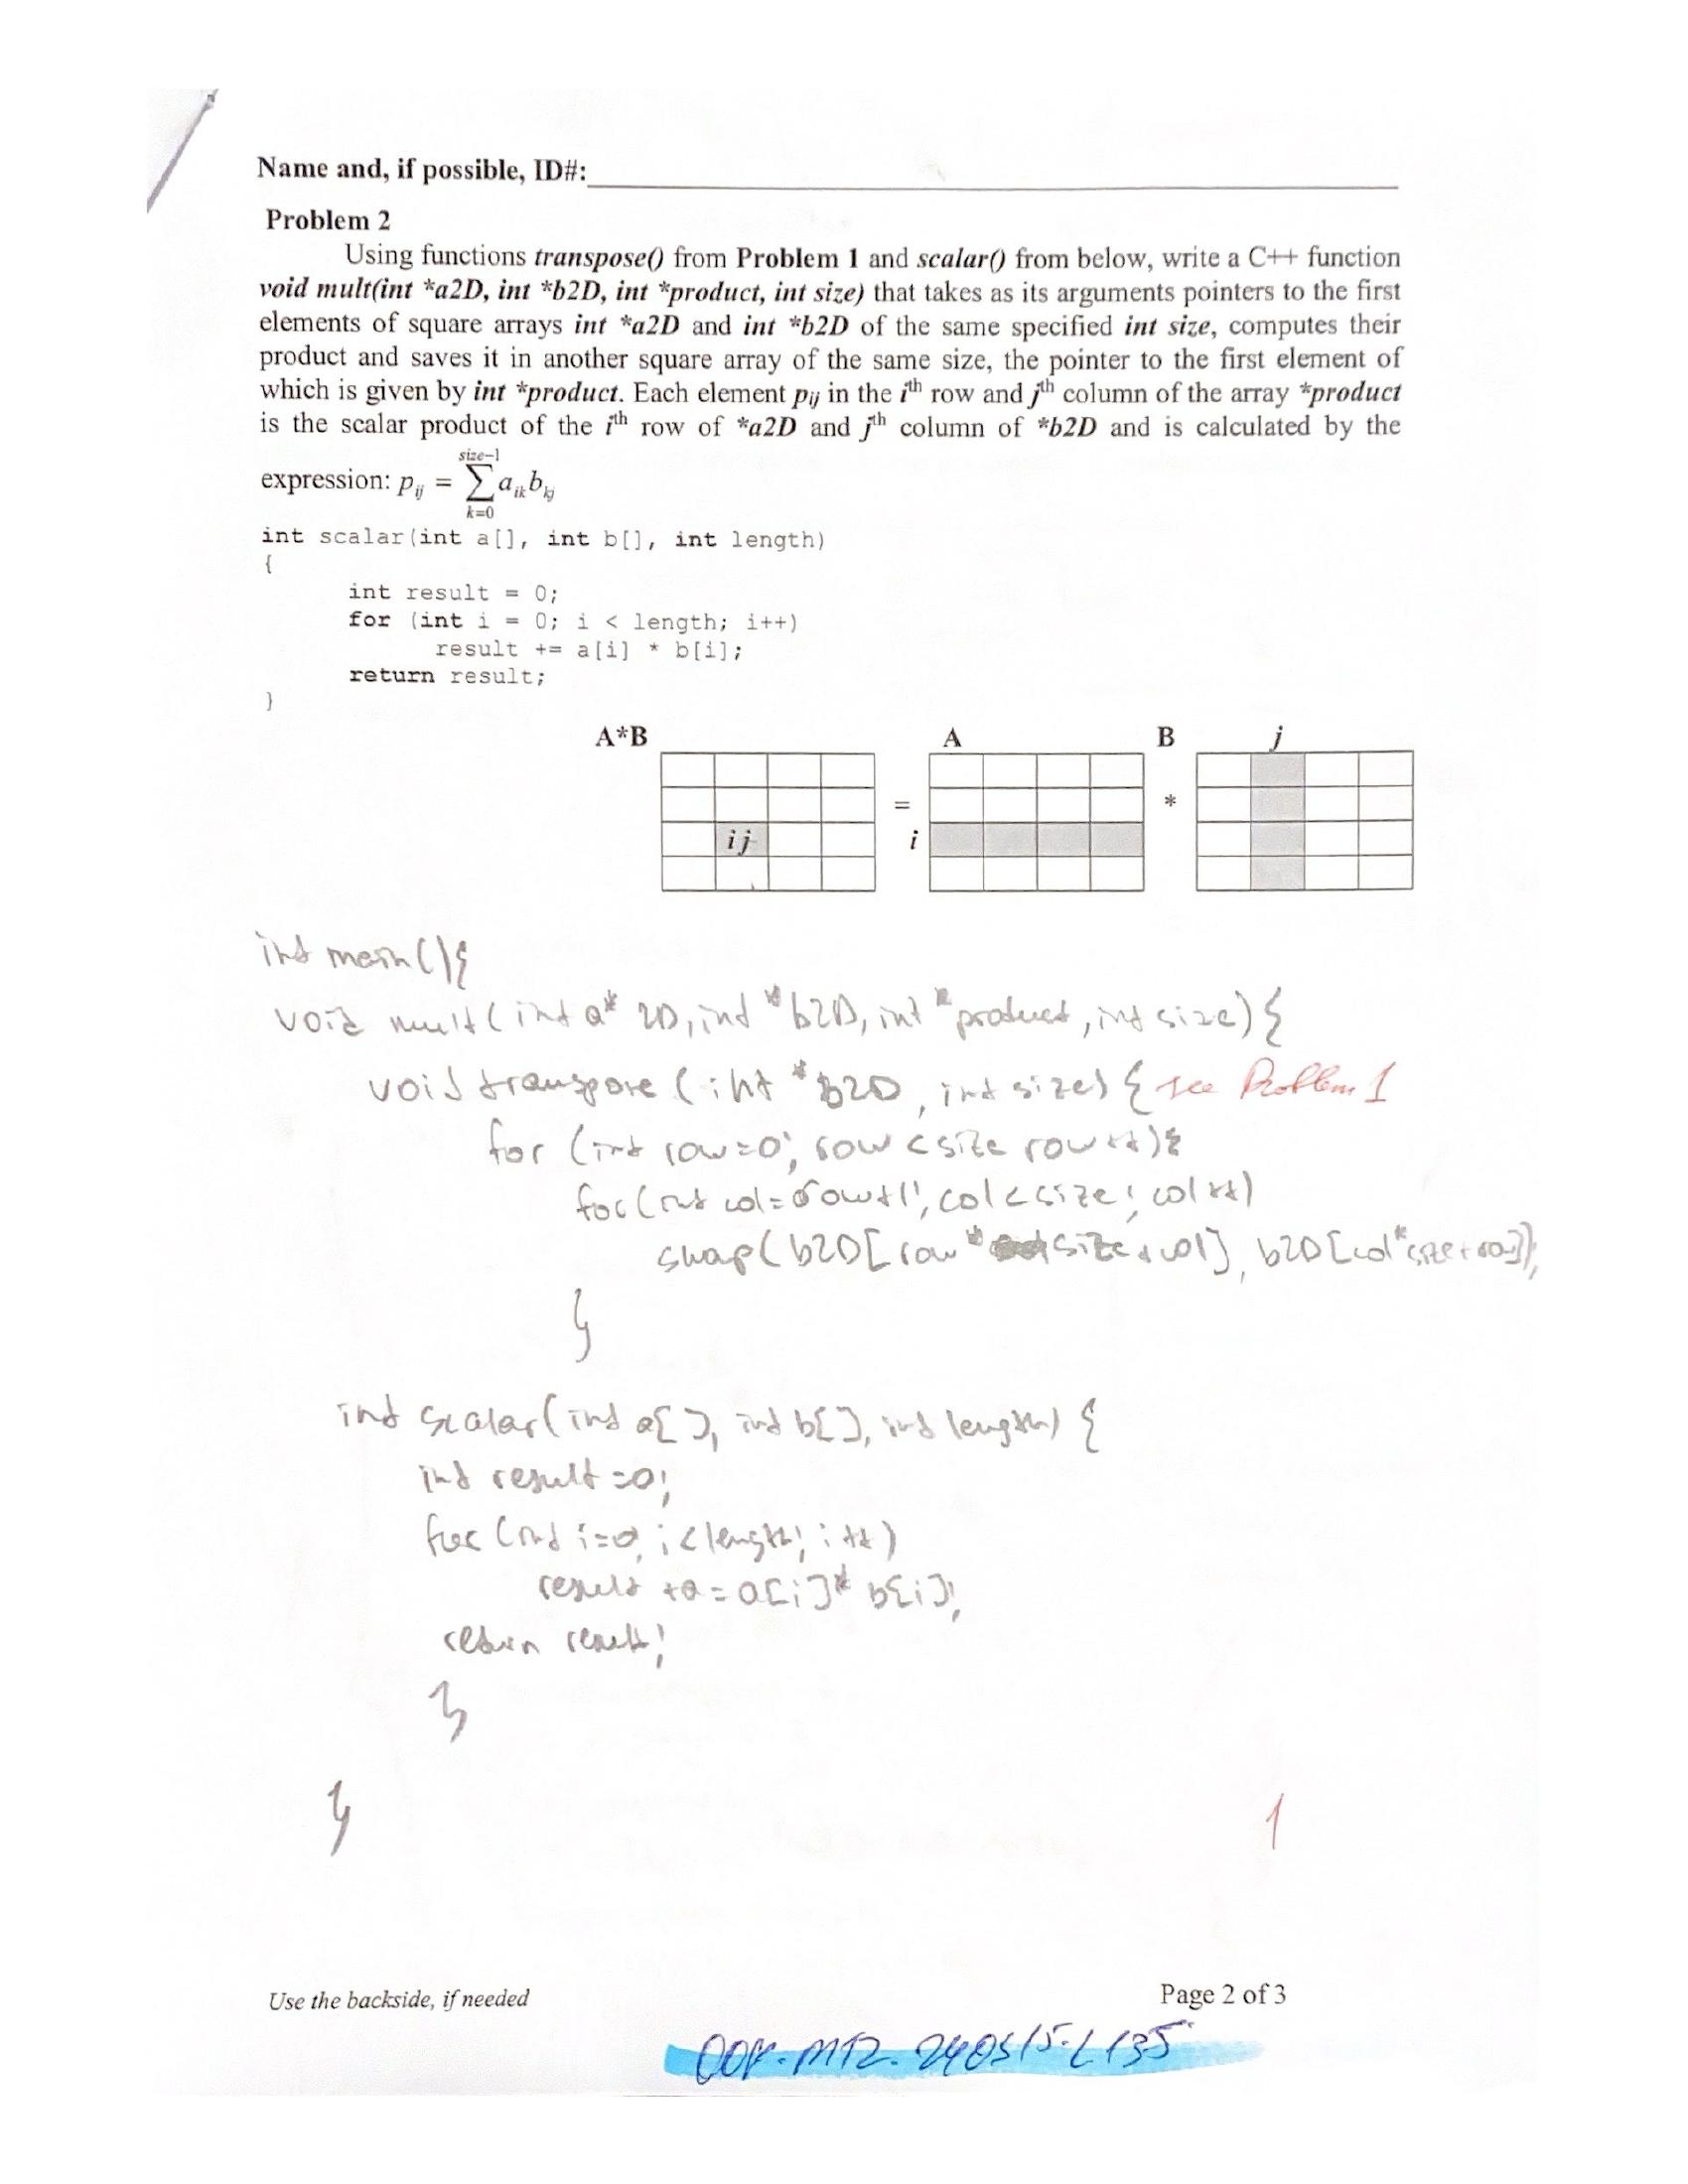 Name and, if possible, ID#:
Problem 2
Using functions transpose() from Problem 1 and scalar() from below, write a C++ function
void mult(int *a2D, int *b2D, int *product, int size) that takes as its arguments pointers to the first
elements of square arrays int *a2D and int *b2D of the same specified int size, computes their
product and saves it in another square array of the same size, the pointer to the first element of
which is given by int *product. Each element pij in the ith row and jth column of the array *product
is the scalar product of the ith row of *a2D and jth column of *b2D and is calculated by the
size-1
expression: pij = ∑ aik bkj
k=0
int scalar(int a[], int b[], int length)
{
int result = 0;
for (int i = 0; i < length; i++)
result += a[i] * b[i];
return result;
}
A*B A B j
= *
ij i
int main(){
void mult(int a* 2D, int *b2D, int *product, int size){
void transpose (int *b2D, int size) { see Problem 1
for (int row=0; row < size row++){
for(int col=row+1; col<size; col++)
swap(b2D[row * size+col], b2D[col*size+row]);
}
int scalar(int a[], int b[], int length) {
int result =0;
for (int i=0; i<length; i++)
result += a[i]* b[i];
return result;
}
}
1
Use the backside, if needed
Page 2 of 3